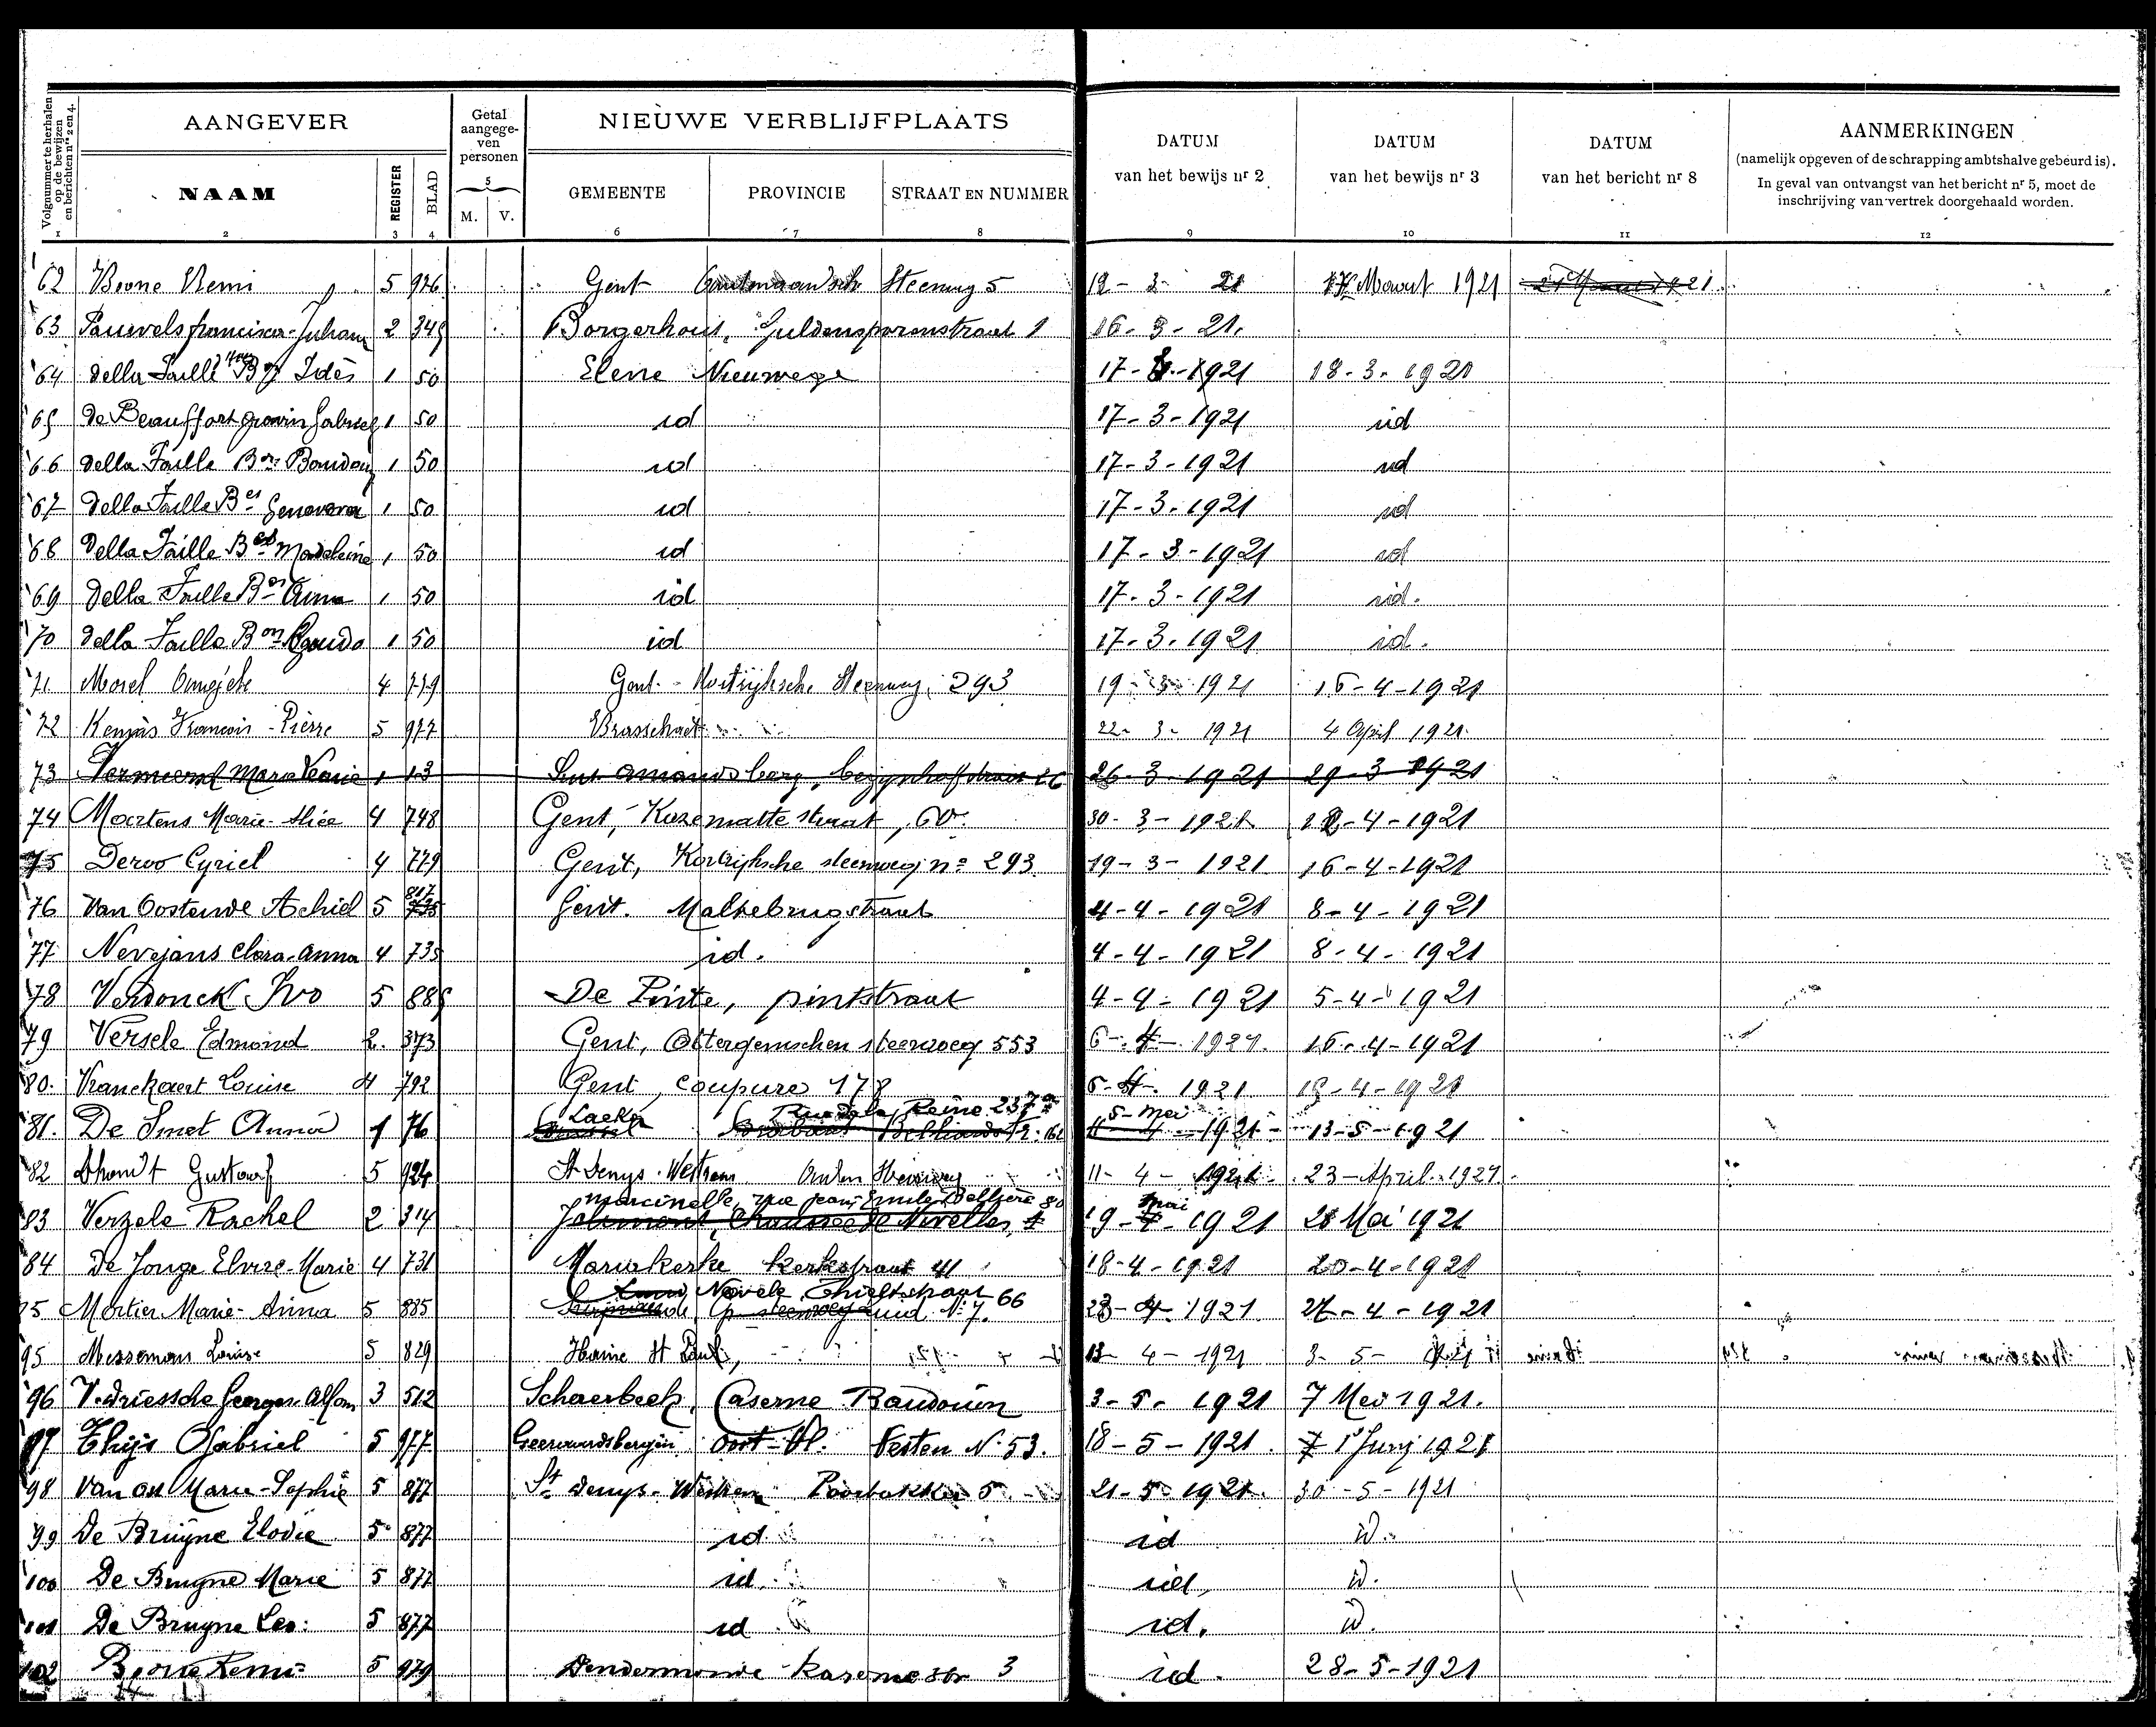 Volgnummer te herhalen op de bewijzen en berichten nrs 2 en 4.
AANGEVER
Getal aangegeven personen
NIEUWE VERBLIJFPLAATS
DATUM van het bewijs nr 2
DATUM van het bewijs nr 3
DATUM van het bericht nr 8
AANMERKINGEN
(namelijk opgeven of de schrapping ambtshalve gebeurd is).
In geval van ontvangst van het bericht nr 5, moet de
inschrijving van vertrek doorgehaald worden.
NAAM REGISTER BLAD M. V. GEMEENTE PROVINCIE STRAAT EN NUMMER
1 2 3 4 5 6 7 8 9 10 11 12
62 Boone Remi 5 926 Gent Steenweg 5 12-3-21 Maart 1921
63 Pauwels 2 345 Borgerhout, Guldensporenstraat 1 16-3-21.
64 della Faille Idès 1 50 Elene Nieuwege 17-3-1921 18-3-1921
65 de Beauffort gravin Gabriel 1 50 id 17-3-1921 id
66 della Faille Bon Boudou 1 50 id 17-3-1921 id
67 della Faille Bes Genoveva 1 50 id 17-3-1921 id
68 della Faille Bes Madeleine 1 50 id 17-3-1921 id
69 della Faille Bes Anna 1 50 id 17-3-1921 id.
70 della Faille Bon 1 50 id 17-3-1921 id.
71 Morel 4 779 Gent - Kortrijksche Steenweg, 293 19-3-1921 16-4-1921
72 Francois-Pierre 5 977 Brasschaet 22-3-1921 4 April 1921.
73 Maria 1 13 Sint Amandsberg, begijnhofstraat 26 26-3-1921 29-3-1921
74 Martens Marie-Alice 4 748 Gent, Kazemattestraat, 60 30-3-1921 12-4-1921
75 Deroo Cyriel 4 779 Gent, Kortrijksche steenweg no 293 19-3-1921 16-4-1921
76 Van Oostende Achiel 5 817 Gent. Maltebrugstraat 4-4-1921 8-4-1921
77 Nevejans Clara-Anna 4 735 id. 4-4-1921 8-4-1921
78 Verdonck Ivo 5 885 De Pinte, pintstraat 4-4-1921 5-4-1921
79 Versele Edmond 2. 373 Gent, Ottergemschen steenweg 553 6-4-1921. 16-4-1921
80. Vranckaert Louise 4 792 Gent, Coupure 178 6-4-1921 18-4-1921
Laeken Rue de la Reine 237 5-mei
81. De Smet Anna 1 76 Brabant 1921 13-5-1921
82 Dhondt Gustaaf 5 924 St Denys-Westrem Steenweg 11-4-1921 23-April-1921.
marcinelle, rue Jean-Emile Bellière 80 mei
83 Verzele Rachel 2 314 Jolimont, Chaussée de Nivelles, 19-4-1921 28 Mei 1921
84 De Jonge Elvire-Marie 4 731 Mariakerke Kerkstraat 41 18-4-1921 20-4-1921
Nevele Thieltstraat 66
Mortier Marie-Anna 5 885 steenweg Zuid No 7. 23-4-1921 27-4-1921
95 Messeman Louise 5 829 Haine St Paul, 13-4-1921 3-5-
96 V. driessche Georges-Alfons 3 512 Schaerbeek, Caserne Baudouin 3-5-1921 7 Mei 1921.
97 Thijs Gabriel 5 977 Geeraardsbergen Oost-Vl. Vesten N. 53. 18-5-1921 1 Juny 1921
98 Van Marie-Sophie 5 877 St Denys-Westrem 5 21-5-1921 30-5-1921
99 De Bruyne Elodie 5 877 id id id.
100 De Bruyne Marie 5 877 id. id. id.
101 De Bruyne Leo: 5 877 id id. id.
102 Boone Remi 5 979 Dendermonde Kazernestr 3 id. 28-5-1921